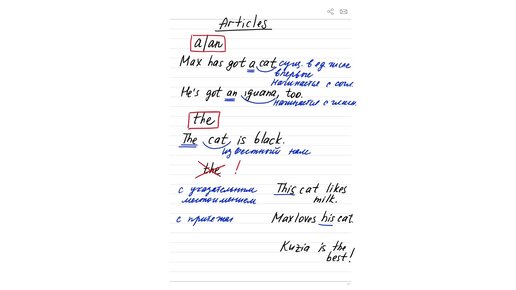 Articles
a/an
Max has got a cat сущ. в ед. числе
впервые
начинается с согл.
He's got an iguana, too.
начинается с гласн.
the
The cat is black.
известный нам
the !
с указательным This cat likes
местоимением milk.
с притяж Max loves his cat.
Kuzia is the
best!